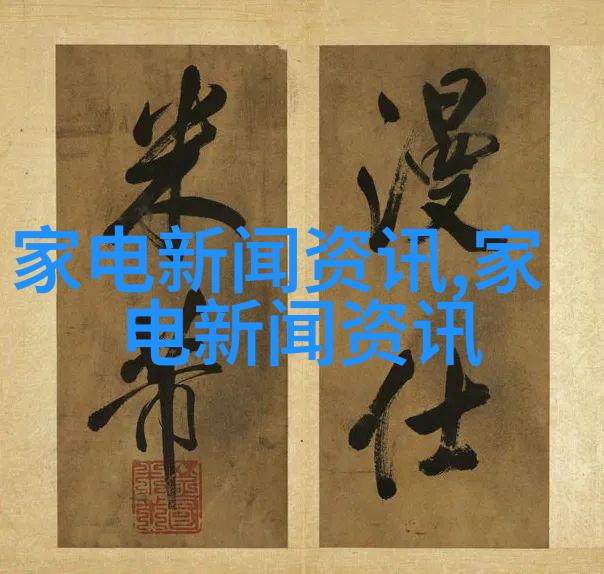 漫仕
米芾
家电新闻资讯,家
电新闻资讯